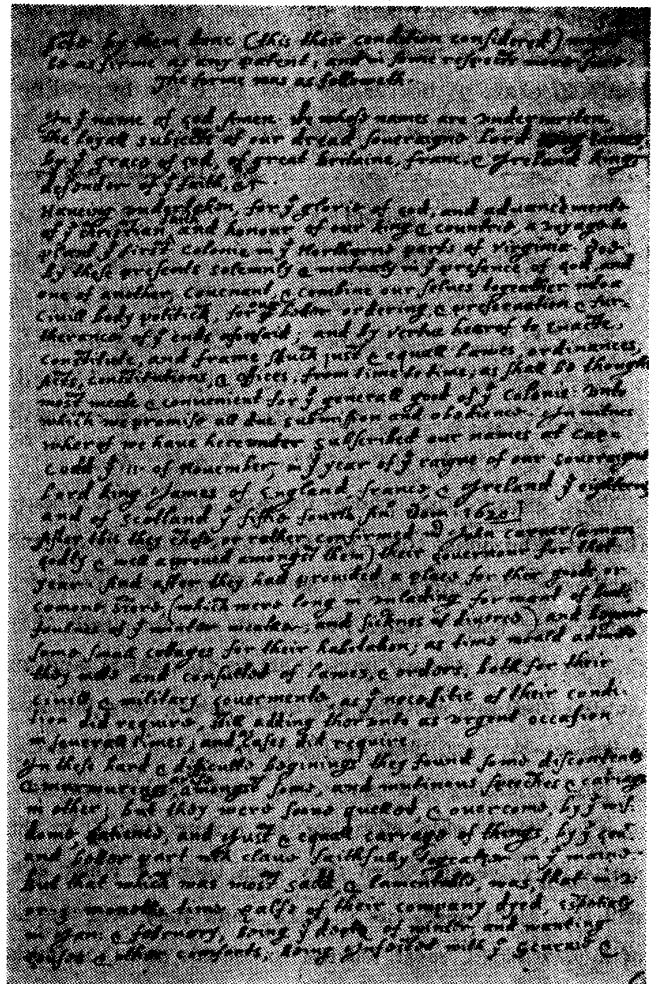 by them done (this their condition considered) might
be as firme as any patent, and in some respects more sure.
The forme was as followeth.
In yᵉ name of god Amen. We whose names are underwriten,
the loyall subjects of our dread soveraigne Lord King James,
by yᵉ grace of god, of great Britaine, franc, & Ireland king,
defender of yᵉ faith, &c.
Haveing undertaken, for yᵉ glorie of god, and advancemente
of yᵉ christian faith and honour of our king & countrie, a voyage to
plant yᵉ first colonie in yᵉ Northerne parts of Virginia. Doe
by these presents solemnly & mutualy in yᵉ presence of god, and
one of another, covenant, & combine our selves togeather into a
civill body politick; for our better ordering, & preservation & fur-
therance of yᵉ ends aforesaid; and by vertue hearof to enacte,
constitute, and frame shuch just & equall lawes, ordinances,
Acts, constitutions, & offices, from time to time, as shall be thought
most meete & convenient for yᵉ generall good of yᵉ colonie: unto
which we promise all due submission and obedience. In witnes
wherof we have hereunder subscribed our names at Cap-
Codd yᵉ ·11· of November, in yᵉ year of yᵉ raigne of our soveraigne
Lord king James of England, franc, & Ireland yᵉ eighteenth
and of Scotland yᵉ fiftie fourth. Anᵒ: Dom. 1620.
After this they chose, or rather confirmed mʳ John Carver (a man
godly & well approved amongst them) their Governour for that
year. And after they had provided a place for their goods, or
comone store, (which were long in unlading for want of boats,
foulnes of yᵉ winter weather, and sicknes of diverce) and begune
some small cottages for their habitation; as time would admitte
they mette and consulted of lawes, & orders, both for their
civill, & military govermente, as yᵉ necessitie of their condi-
tion did require, still adding therunto as urgent occasion
in severall times, and as cases did require.
In these hard & difficulte beginings they found some discontents
& murmurings arise amongst some, and mutinous speeches & cariags
in other; but they were soone quelled, & overcome, by yᵉ wis-
dome, patience, and just & equall carrage of things, by yᵉ Govʳ
and better part wᶜʰ clave faithfully togeather in yᵉ maine.
But that which was most sadd, & lamentable, was, that in 2.
or 3. moneths time halfe of their company dyed, espetialy
in Jan: & february, being yᵉ depth of winter, and wanting
houses & other comforts; being infected with yᵉ scurvie &